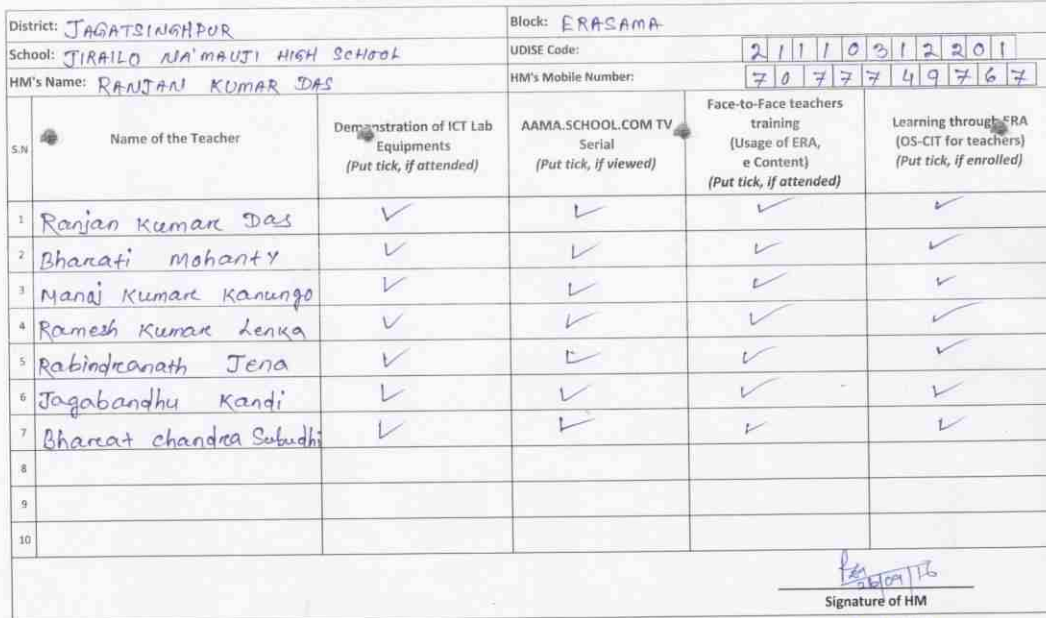 District: JAGATSINGHPUR Block: ERASAMA
School: JIRAILO NA'MAUJI HIGH SCHOOL UDISE Code: 21110312201
HM's Name: RANJAN KUMAR DAS HM's Mobile Number: 7077749767
S.N Name of the Teacher Demonstration of ICT Lab Equipments (Put tick, if attended) AAMA.SCHOOL.COM TV Serial (Put tick, if viewed) Face-to-Face teachers training (Usage of ERA, e Content) (Put tick, if attended) Learning through ERA (OS-CIT for teachers) (Put tick, if enrolled)
1 Ranjan Kumar Das ✓ ✓ ✓ ✓
2 Bharati Mohanty ✓ ✓ ✓ ✓
3 Manoj Kumar Kanungo ✓ ✓ ✓ ✓
4 Ramesh Kumar Lenka ✓ ✓ ✓ ✓
5 Rabindranath Jena ✓ ✓ ✓ ✓
6 Jagabandhu Kandi ✓ ✓ ✓ ✓
7 Bharat chandra Subudhi ✓ ✓ ✓ ✓
8
9
10
26/09/16
Signature of HM